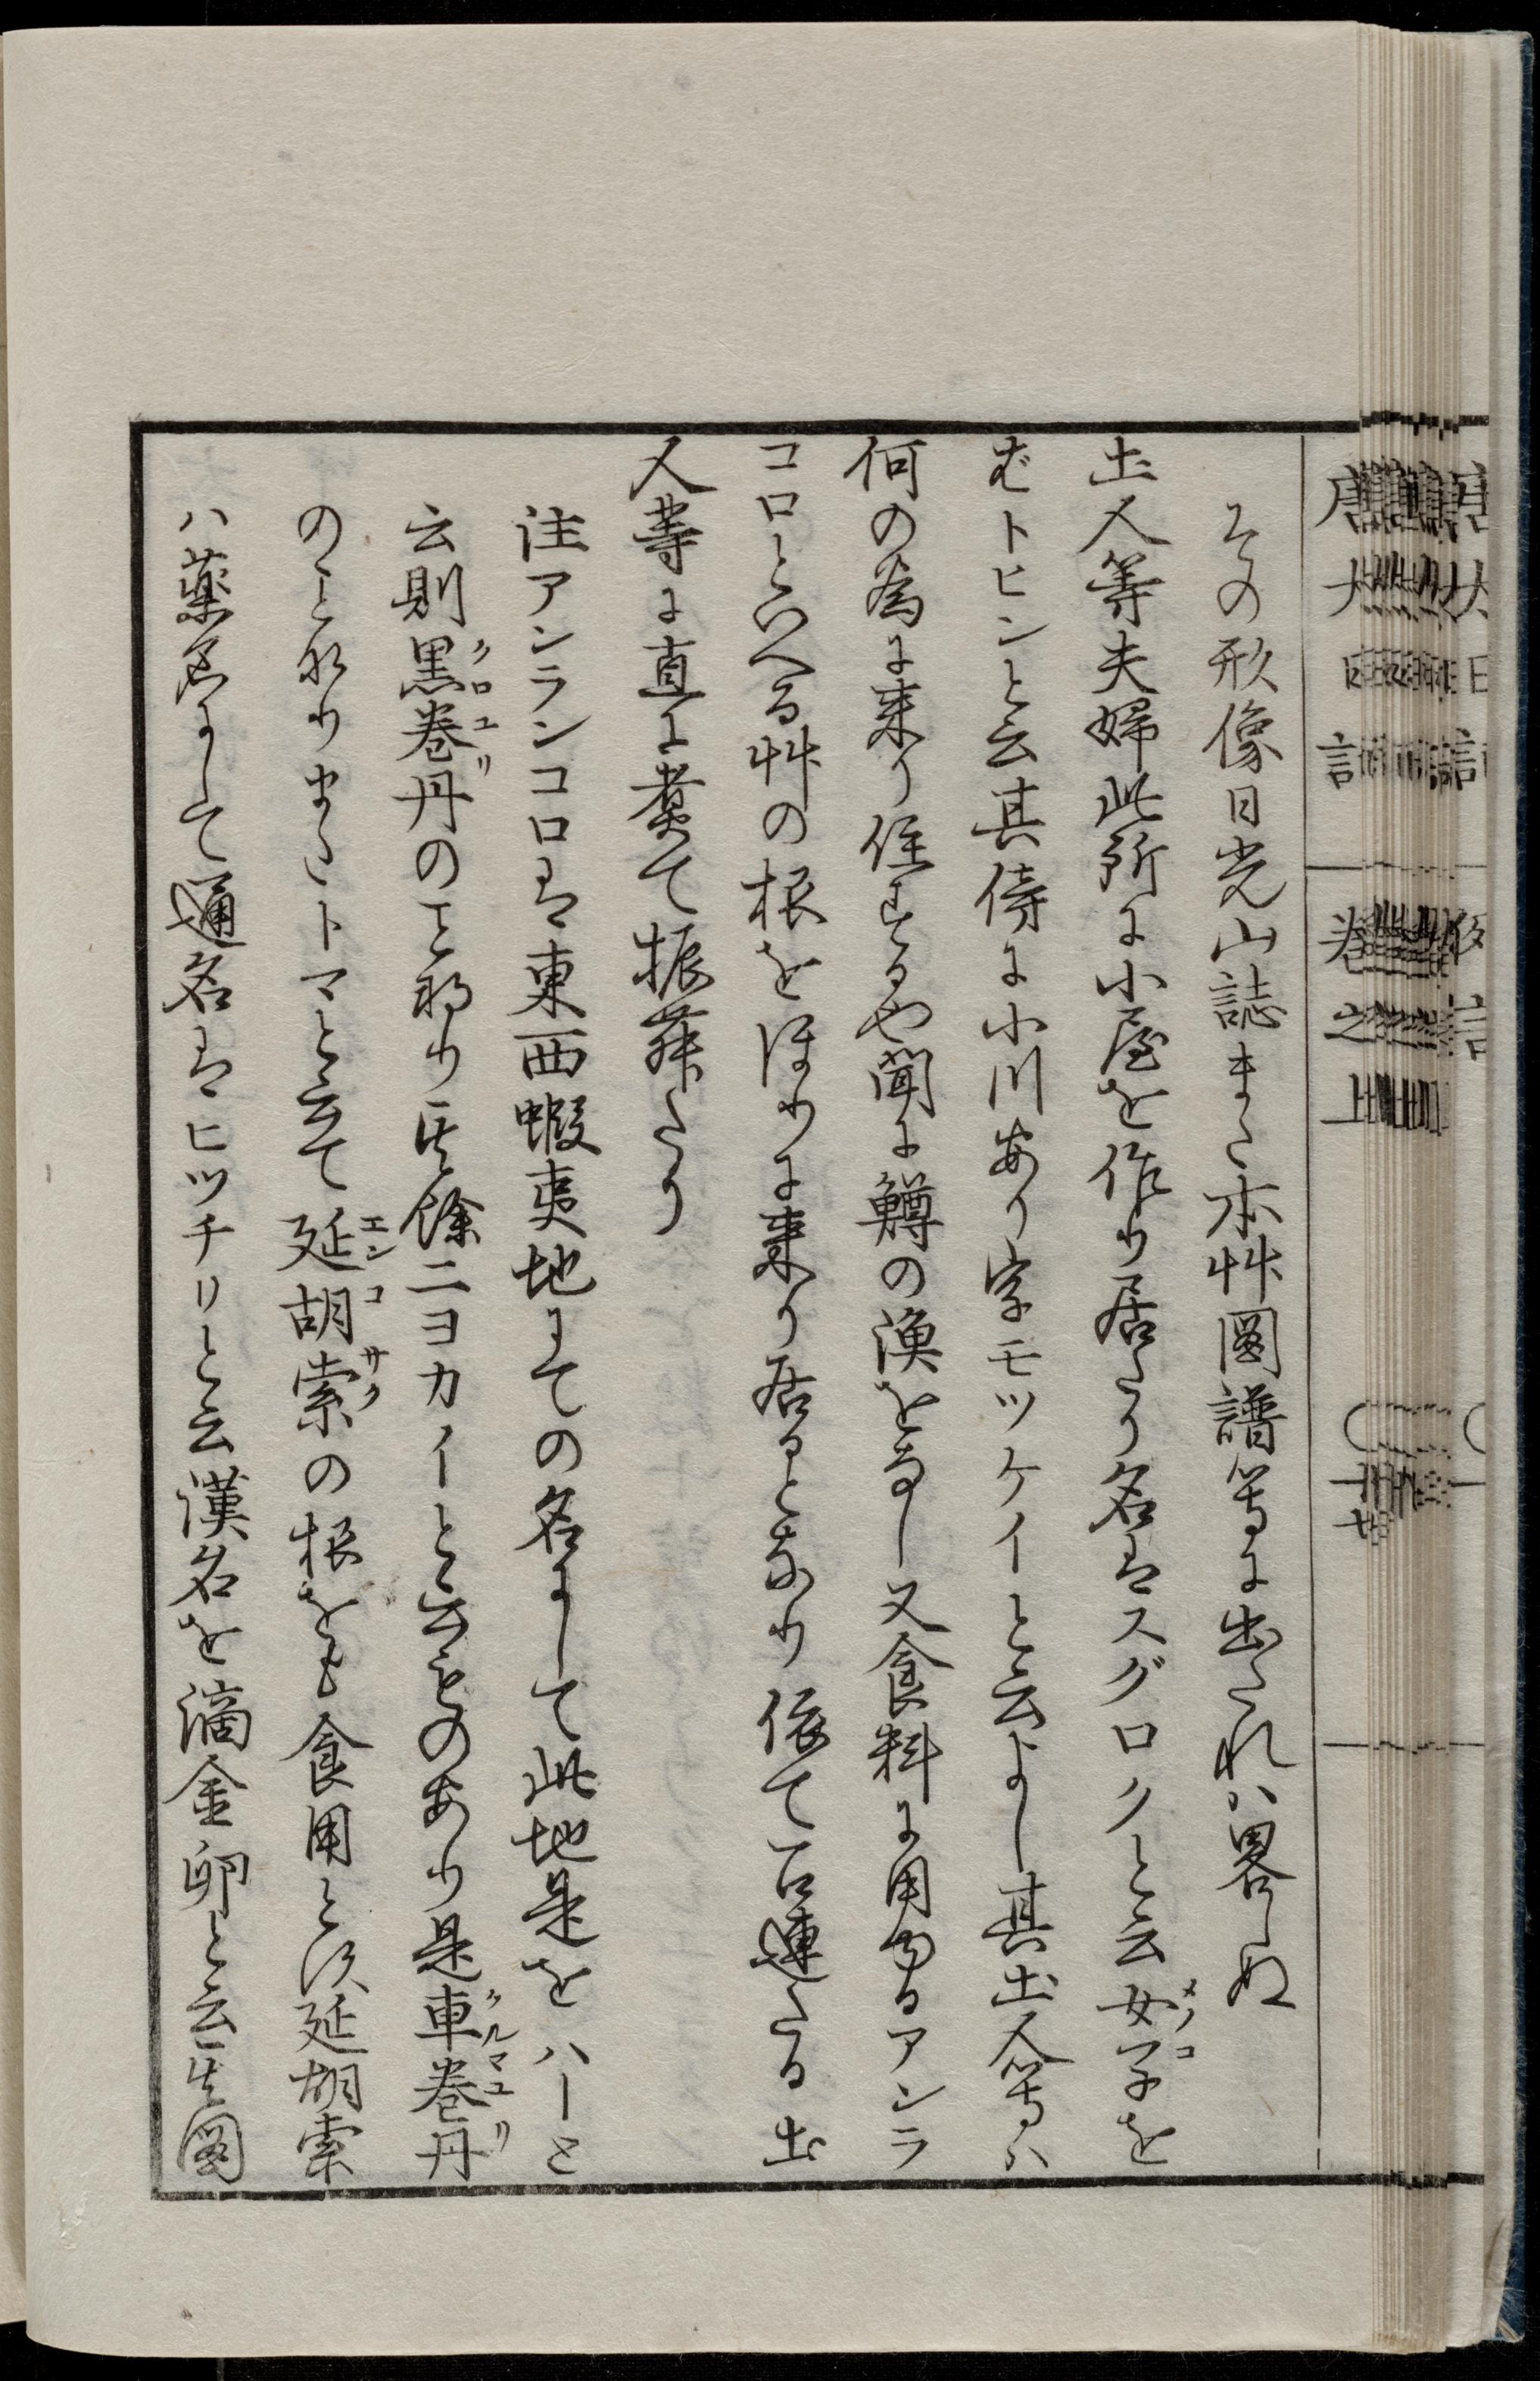 その形像日光山誌また本艸圖譜等に出たれハ畧しぬ
土人等夫婦此所に小屋を作り居たり名はスグロクと云女子メノコを
ばトヒンと云其傍に小川あり字モツケイと云よし其土人等ハ
何の為に来り住するや聞に鱒の漁をなし又食料に用ゆるアンラ
コロといへる艸の根をほりに来り居るとなり依て召連たる土
人等に直に煮て振舞たり
注アンランコロは東西蝦夷地にての名にして此地是をハーと
云則黒巻丹クロユリのこと那り其餘ニヨカイと云ものあり是車巻丹クルマユリ
のこと那りまたトマと云て延胡索エンコサクの根をも食用とす延胡索
ハ薬名にして通名はヒツチリと云漢名を滴金卵と云生圖
巻之上